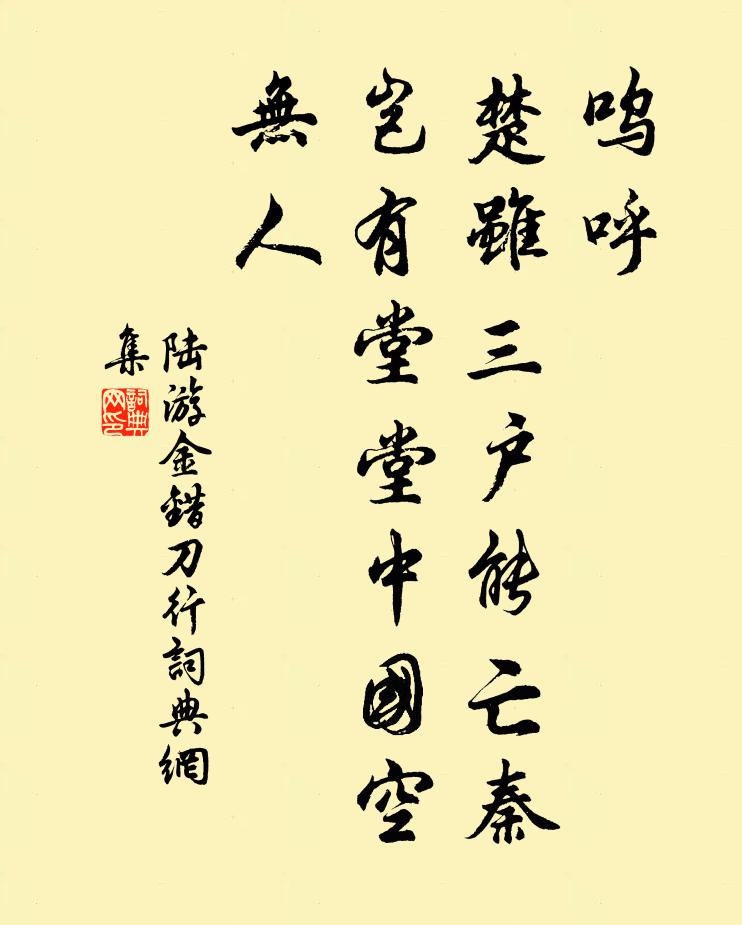 呜呼
楚雖三户能亡秦
岂有堂堂中國空
無人
陆游金錯刀行詞典網
集
詞典
网印